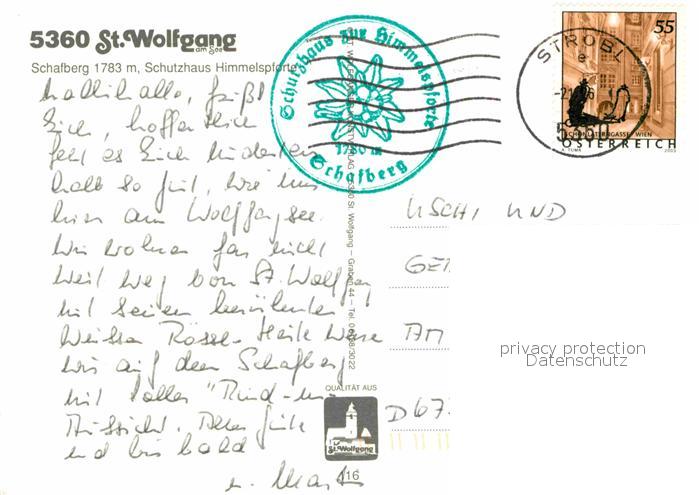 5360 St. Wolfgang
am See
Schafberg 1783 m, Schutzhaus Himmelspforte
Hallihallo, grüßt
Eich, hoffentlich
geht es Eich mindestens
halb so gut, wie uns
hier am Wolfgangsee.
Wir wohnen gar nicht
weit weg von St. Wolfgang
mit seinem berühmten
Weissen Rössel. Heite waren
wir auf dem Schafberg
mit toller "Rund-um
Aussicht. Alles Gute
und bis bald
Schutzhaus zur Himmelspforte
1780 m
Schafberg
St. Wolfgang – Graben 44 – Tel.
QUALITÄT AUS
St. Wolfgang
116
STROBL
55
SCHÖNLATERNGASSE, WIEN
ÖSTERREICH
A. TUMA
2003
USCHI UND
GE
AM
D 67
privacy protection
Datenschutz